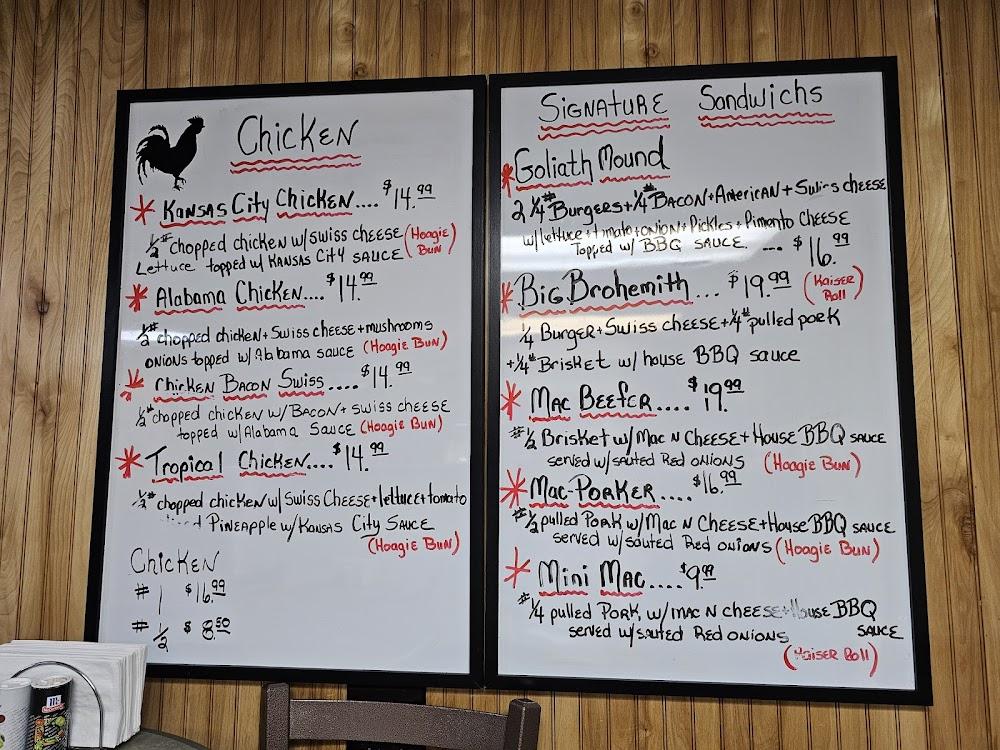 Chicken
* Kansas City Chicken.... $14.99
1/2# chopped chicken w/ swiss cheese (Hoagie Bun)
Lettuce topped w/ Kansas City sauce
* Alabama Chicken.... $14.99
1/2# chopped chicken + Swiss cheese + mushrooms
onions topped w/ Alabama sauce (Hoagie Bun)
* Chicken Bacon Swiss.... $14.99
1/2# chopped chicken w/ Bacon + swiss cheese
topped w/ Alabama Sauce (Hoagie Bun)
* Tropical Chicken.... $14.99
1/2# chopped chicken w/ Swiss Cheese + lettuce + tomato
Pineapple w/ Kansas City Sauce
(Hoagie Bun)
Chicken
# 1 $16.99
# 1/2 $8.50
Signature Sandwichs
* Goliath Mound
2 1/4# Burgers + 1/4# Bacon + American + Swiss cheese
w/ lettuce + tomato + onion + Pickles + Pimanto Cheese
Topped w/ BBQ sauce .... $16.99
* Big Brohemith ... $19.99 (Kaiser Roll)
1/4 Burger + Swiss cheese + 1/4# pulled pork
+ 1/4# Brisket w/ house BBQ sauce
* Mac Beefer.... $19.99
#1/2 Brisket w/ Mac N Cheese + House BBQ sauce
served w/ sauted Red onions (Hoagie Bun)
* Mac-Porker.... $16.99
#1/2 pulled Pork w/ Mac N Cheese + House BBQ sauce
served w/ sauted Red onions (Hoagie Bun)
* Mini Mac.... $9.99
#1/4 pulled Pork, w/ mac N cheese + House BBQ sauce
served w/ sauted Red onions
(Kaiser Roll)